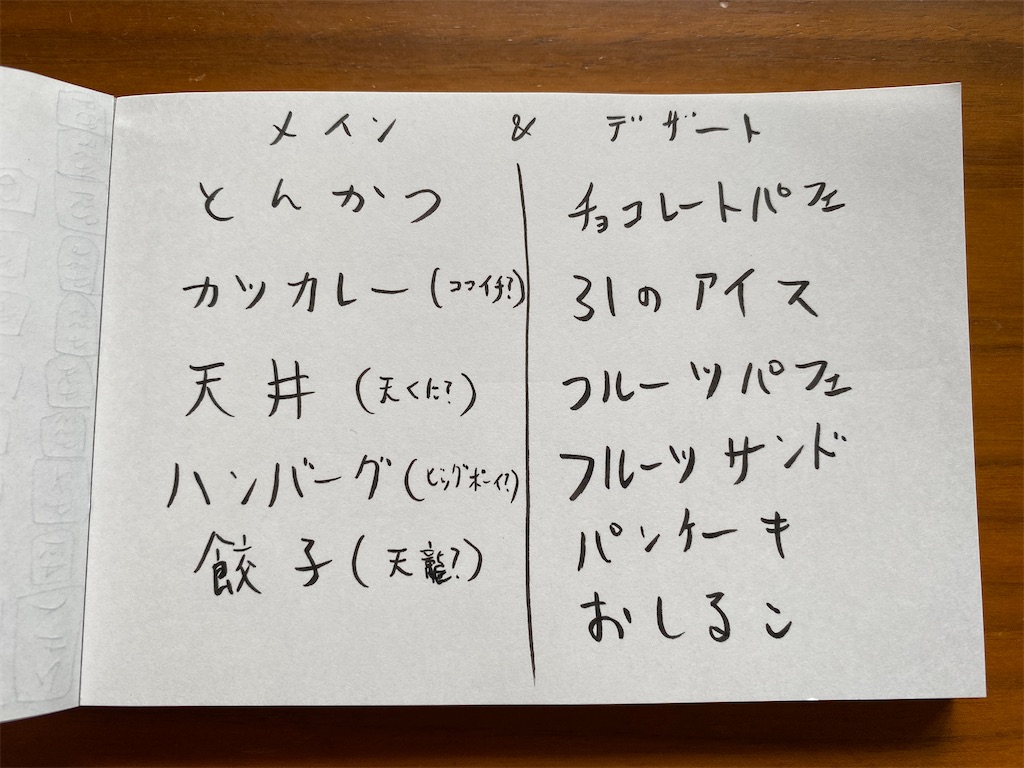 メイン & デザート
とんかつ
カツカレー(ココイチ?)
天井(天くに?)
ハンバーグ(ビッグボーイ?)
餃子(天龍?)
チョコレートパフェ
31のアイス
フルーツパフェ
フルーツサンド
パンケーキ
おしるこ